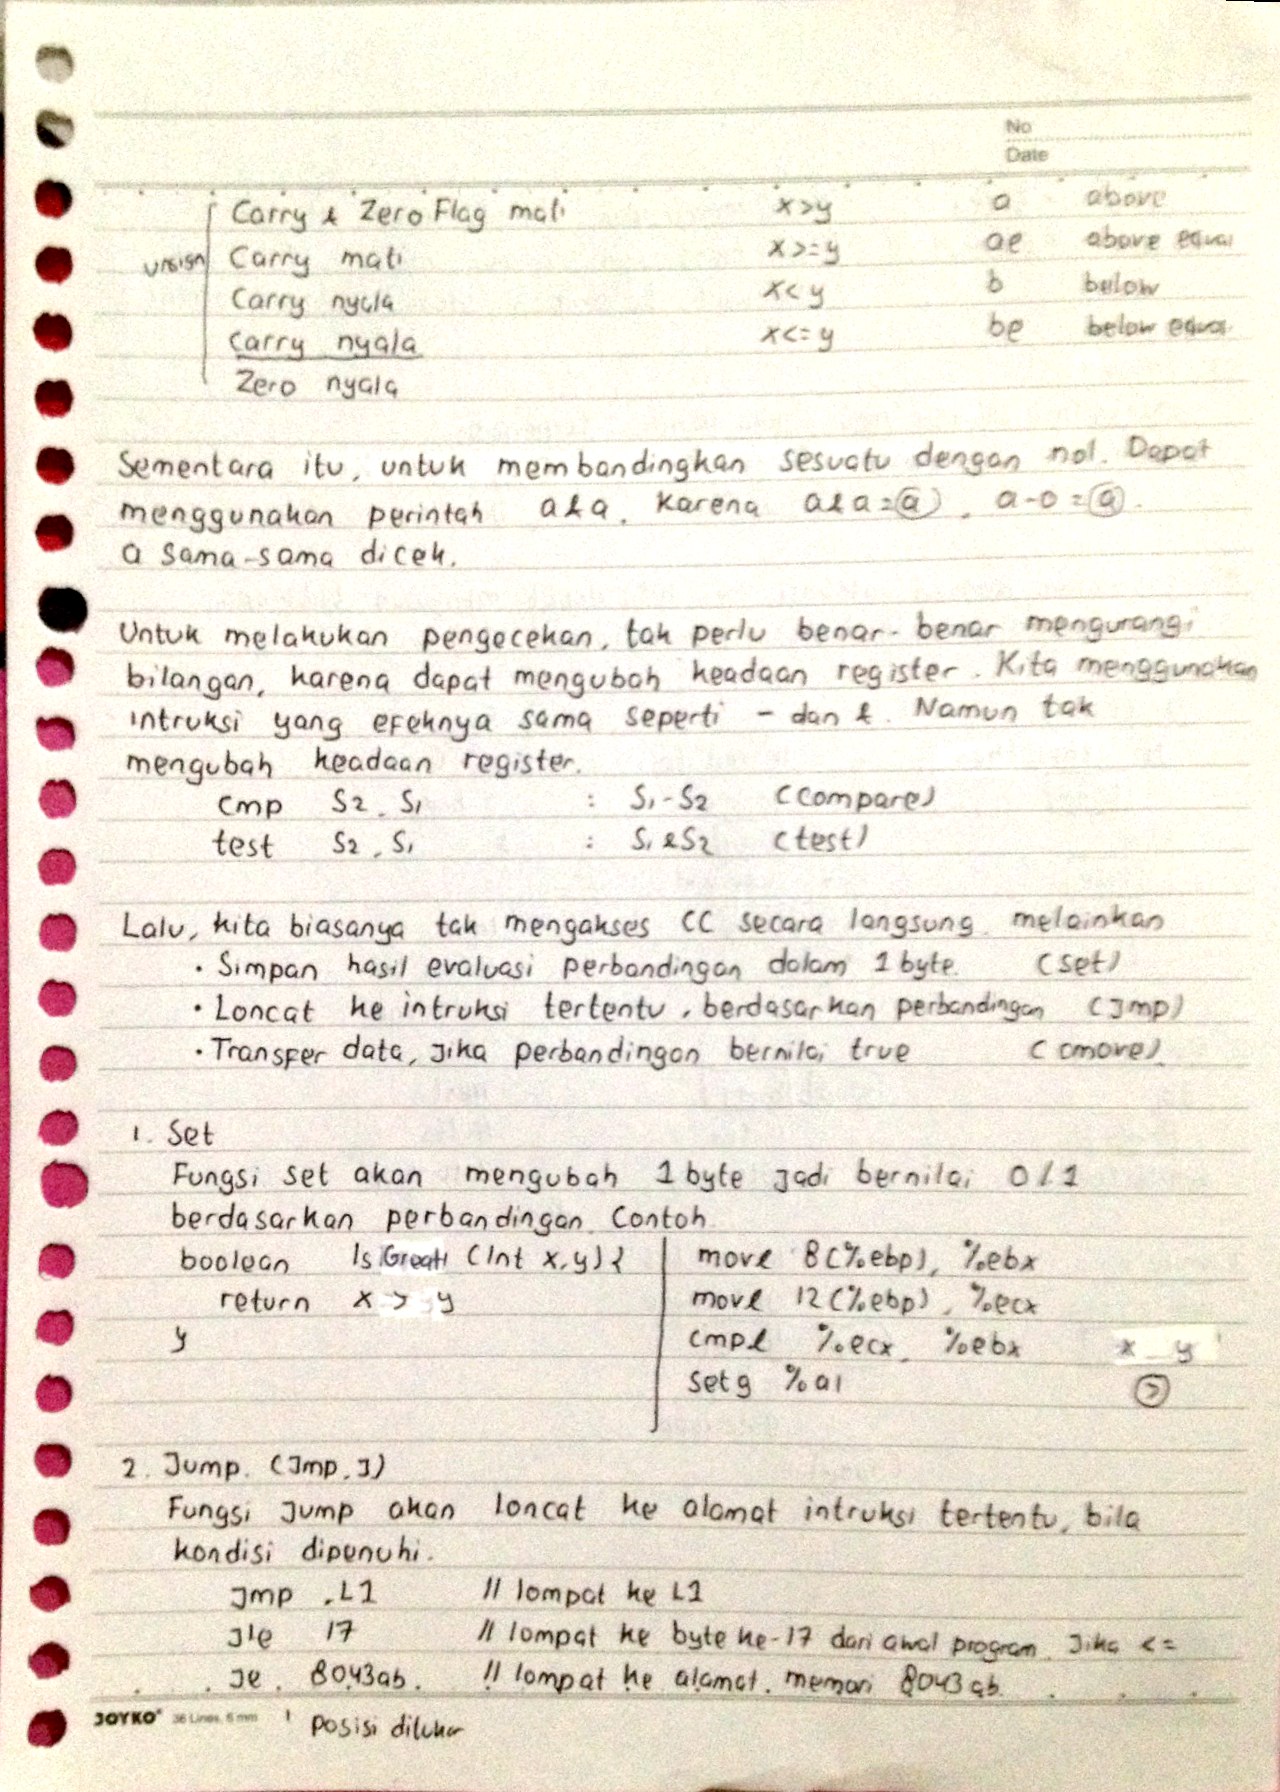 No
Date
Carry & Zero Flag mati x>y a above
unsign Carry mati x>=y ae above equal
Carry nyala x<y b below
Carry nyala x<=y be below equal
Zero nyala
Sementara itu, untuk membandingkan sesuatu dengan nol. Dapat
menggunakan perintah a&a. Karena a&a=a, a-0=a.
a sama-sama dicek.
Untuk melakukan pengecekan, tak perlu benar-benar mengurangi
bilangan, karena dapat mengubah keadaan register. Kita menggunakan
intruksi yang efeknya sama seperti - dan &. Namun tak
mengubah keadaan register.
cmp S2, S1 : S1-S2 (compare)
test S2, S1 : S1&S2 (test)
Lalu, kita biasanya tak mengakses CC secara langsung, melainkan
• Simpan hasil evaluasi perbandingan dalam 1 byte. (set)
• Loncat ke intruksi tertentu, berdasarkan perbandingan (jmp)
• Transfer data, jika perbandingan bernilai true (cmove).
1. Set
Fungsi set akan mengubah 1 byte jadi bernilai 0/1
berdasarkan perbandingan. Contoh
boolean Is Great (int x,y) { move 8(%ebp), %ebx
return x > y move 12(%ebp), %ecx
} cmpl %ecx, %ebx x y
setg %al >
2. Jump. (Jmp, J)
Fungsi Jump akan loncat ke alamat intruksi tertentu, bila
kondisi dipenuhi.
Jmp .L1 // lompat ke L1
Jle 17 // lompat ke byte ke-17 dari awal program. Jika <=
Je 8043ab. // lompat ke alamat memori 8043ab.
JOYKO 36 Lines, 6 mm
Posisi